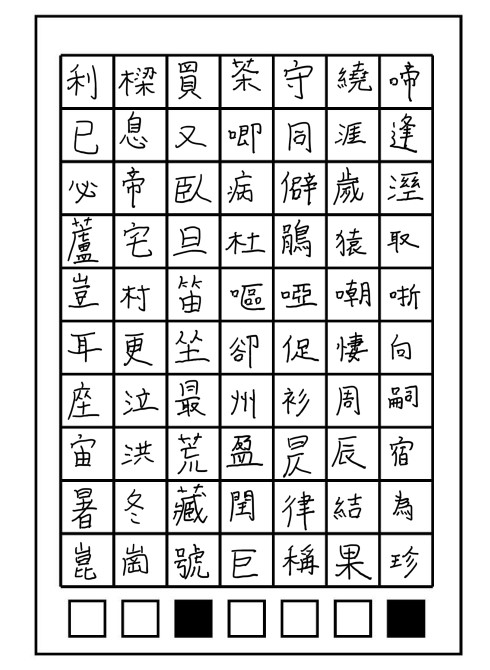 利樑買茶守繞啼
已息又唧同涯逢
必帝臥病僻歲溼
蘆宅旦杜鵑猿取
豈村笛嘔啞嘲哳
耳更坐卻促悽向
座泣最州衫周嗣
宙洪荒盈昃辰宿
暑冬藏閏律結為
崑崗號巨稱果珍